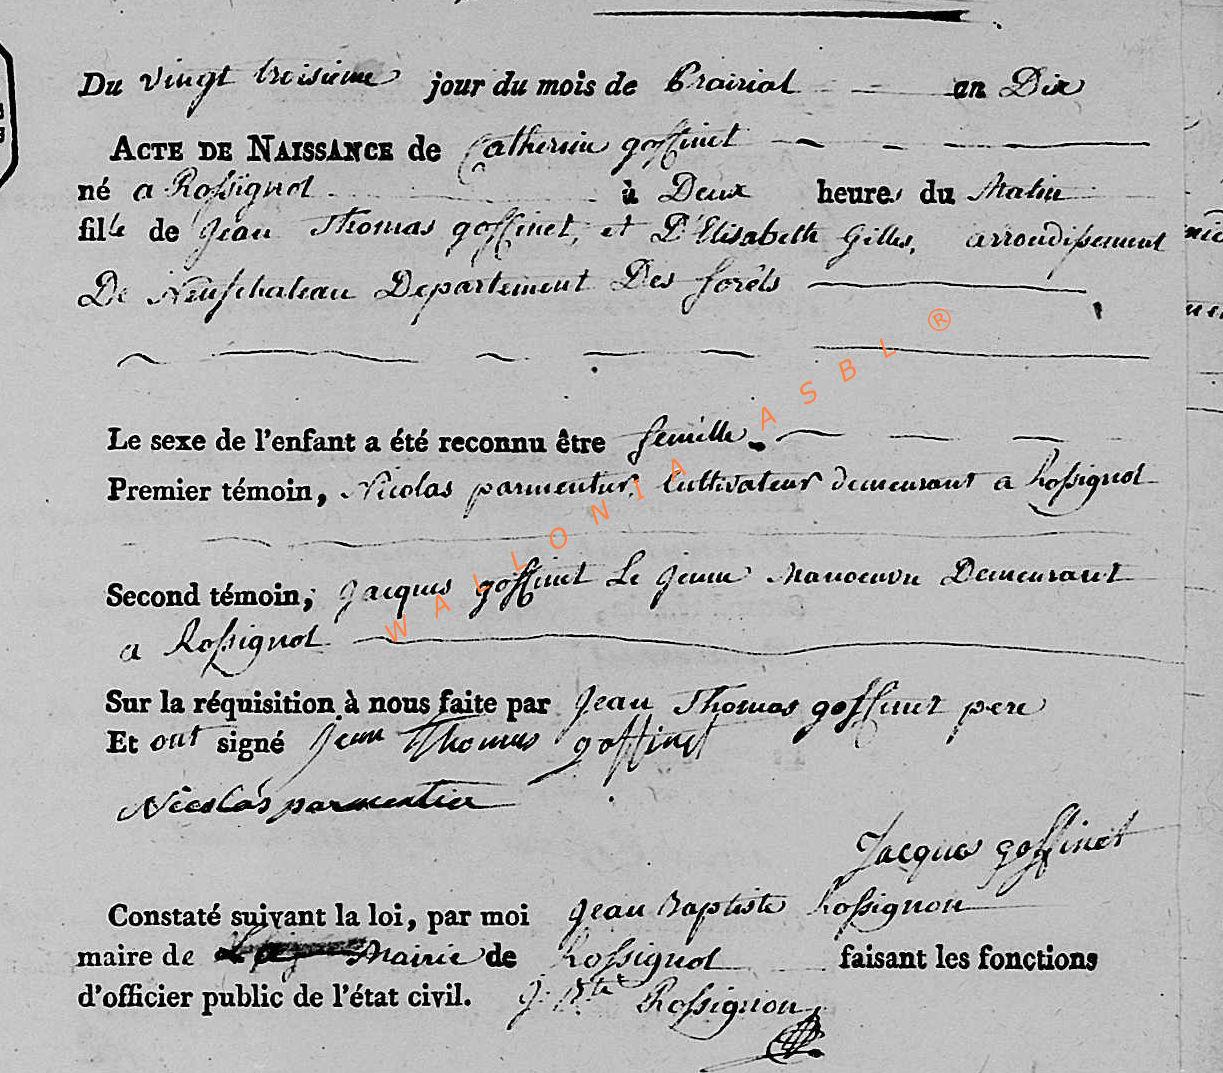 Du vingt troisieme jour du mois de Prairial an Dix
ACTE DE NAISSANCE de Catherine goffinet
né a Rossignol à Deux heures du Matin
fille de Jean Thomas goffinet, et D'Elisabeth Gilles, arrondissement
De Neufchateau Departement Des forêts
Le sexe de l'enfant a été reconnu être femille.
Premier témoin, Nicolas parmentier, Cultivateur demeurant a Rossignol
Second témoin, Jacques goffinet Le Jeune Manoeuvre Demeurant
a Rossignol
Sur la réquisition à nous faite par Jean Thomas goffinet pere
Et ont signé Jean Thomas goffinet
Nicolas parmentier
Jacques goffinet
Constaté suivant la loi, par moi Jean Baptiste Rossignon
maire de Mairie de Rossignol faisant les fonctions
d'officier public de l'état civil. J. Bte Rossignon
WALLONIA ASBL ®